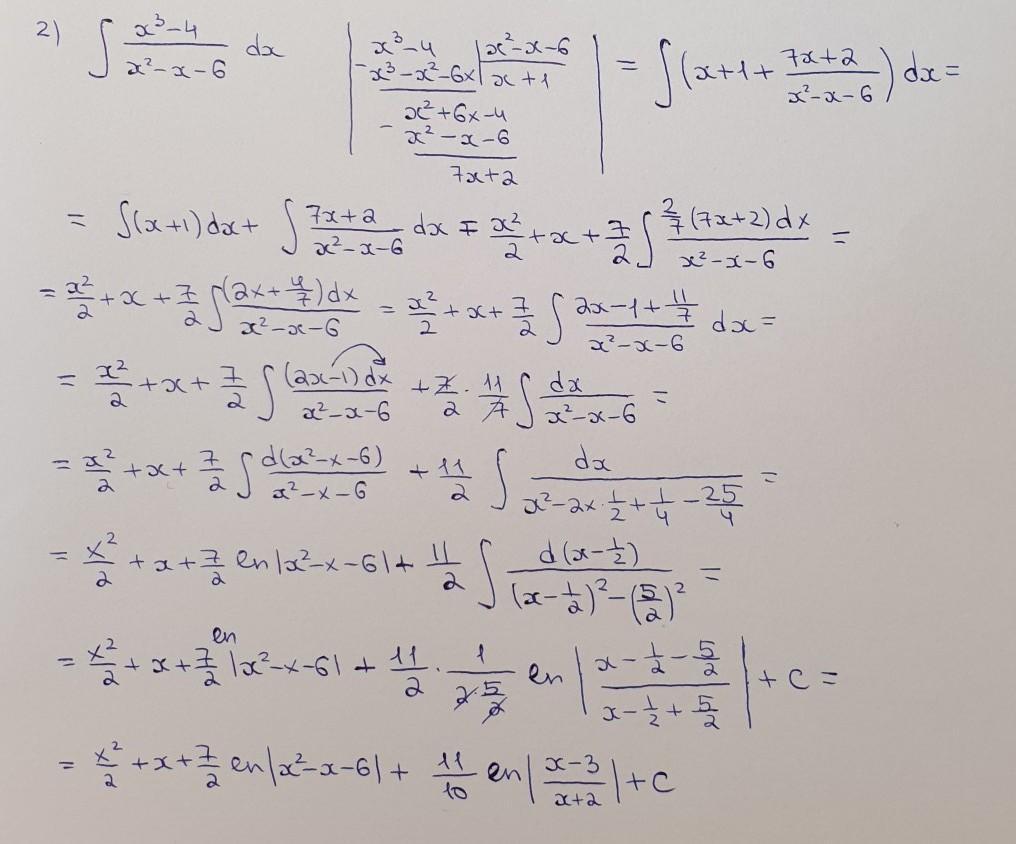 2) ∫ (x³-4)/(x²-x-6) dx | x³-4 | x²-x-6 | = ∫(x+1+ (7x+2)/(x²-x-6)) dx =
- x³-x²-6x | x+1
x²+6x-4
- x²-x-6
7x+2
= ∫(x+1)dx + ∫ (7x+2)/(x²-x-6) dx = x²/2 + x + 7/2 ∫ (2/7 (7x+2) dx)/(x²-x-6) =
= x²/2 + x + 7/2 ∫ ((2x+4/7) dx)/(x²-x-6) = x²/2 + x + 7/2 ∫ (2x-1+11/7)/(x²-x-6) dx =
= x²/2 + x + 7/2 ∫ ((2x-1) dx)/(x²-x-6) + 7/2 · 11/7 ∫ dx/(x²-x-6) =
= x²/2 + x + 7/2 ∫ d(x²-x-6)/(x²-x-6) + 11/2 ∫ dx/(x²-2x·1/2+1/4-25/4) =
= x²/2 + x + 7/2 ln|x²-x-6| + 11/2 ∫ d(x-1/2)/((x-1/2)²-(5/2)²) =
= x²/2 + x + 7/2 ln |x²-x-6| + 11/2 · 1/(2·5/2) ln |(x-1/2-5/2)/(x-1/2+5/2)| + C =
= x²/2 + x + 7/2 ln|x²-x-6| + 11/10 ln|(x-3)/(x+2)| + C